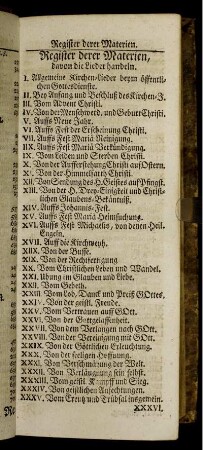 Register derer Materien.
Register derer Materien,
davon die Lieder handeln.
I. Allgemeine Kirchen-Lieder beym öffentli-
chen Gottesdienste.
II. Bey Anfang und Beschluß des Kirchen-J.
III. Vom Advent Christi.
IV. Von der Menschwerd. und Geburt Christi.
V. Auffs Neue Jahr.
VI. Auffs Fest der Erscheinung Christi.
VII. Auffs Fest Mariä Reinigung.
IIX. Auffs Fest Mariä Verkündigung.
IX. Vom Leiden und Sterben Christi.
X. Von der Aufferstehung Christi auf Ostern.
XI. Von der Himmelfarth Christi.
XII. Von Sendung des H. Geistes auf Pfingst.
XIII. Von der H. Drey-Einigkeit und Christ-
lichen Glaubens-Bekäntniß.
XIV. Auffs Johannis-Fest.
XV. Auffs Fest Mariä Heimsuchung.
XVI. Auffs Fest Michaelis, von denen Heil.
Engeln.
XVII. Auff die Kirchweyh.
XIIX. Von der Busse.
XIX. Von der Rechtfertigung
XX. Vom Christlichen Leben und Wandel.
XXI. Übung im Glauben und Liebe.
XXII. Vom Gebeth.
XXIII. Vom Lob, Danck und Preiß GOttes.
XXIV. Von der geistl. Freude.
XXV. Vom Vertrauen auff GOtt.
XXVI. Von der Gottgelassenheit.
XXVII. Von dem Verlangen nach GOtt.
XXVIII. Von der Vereinigung mit GOtt.
XXIX. Von der Göttlichen Erleuchtung.
XXX. Von der seeligen Hoffnung.
XXXI. Von Verschmähung der Welt.
XXXII. Von Verläugnung sein selbst.
XXXIII. Vom geistl. Kampff und Sieg.
XXXIV. Von geistlichen Anfechtungen.
XXXV. Vom Creutz und Trübsal insgemein.
XXXVI.